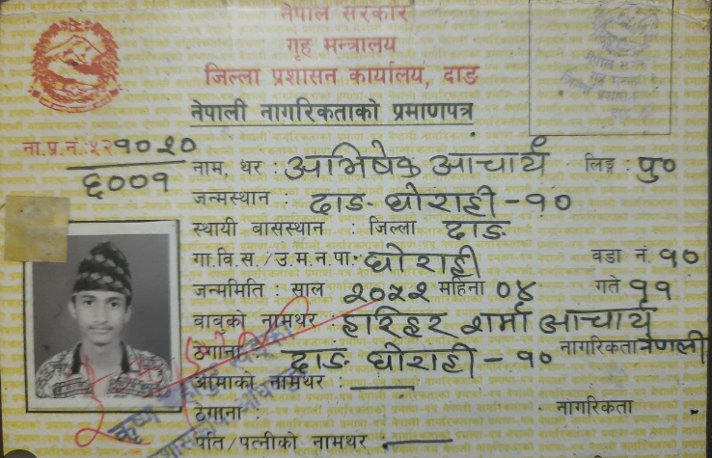 नेपाल सरकार
गृह मन्त्रालय
जिल्ला प्रशासन कार्यालय, दाङ
नेपाली नागरिकताको प्रमाणपत्र
ना.प्र.नं. ५२१०२०
६००१
नाम, थर : अभिषेक आचार्य लिङ्ग : पु०
जन्मस्थान : दाङ घोराही - १०
स्थायी बासस्थान : जिल्ला दाङ
गा.वि.स./उ.म.न.पा. घोराही वडा नं. १०
जन्ममिति : साल २०५२ महिना ०४ गते ११
बाबुको नामथर : हरिहर शर्मा आचार्य
ठेगाना : दाङ घोराही - १० नागरिकता नेपाली
आमाको नामथर :
ठेगाना : नागरिकता
पति/पत्नीको नामथर :